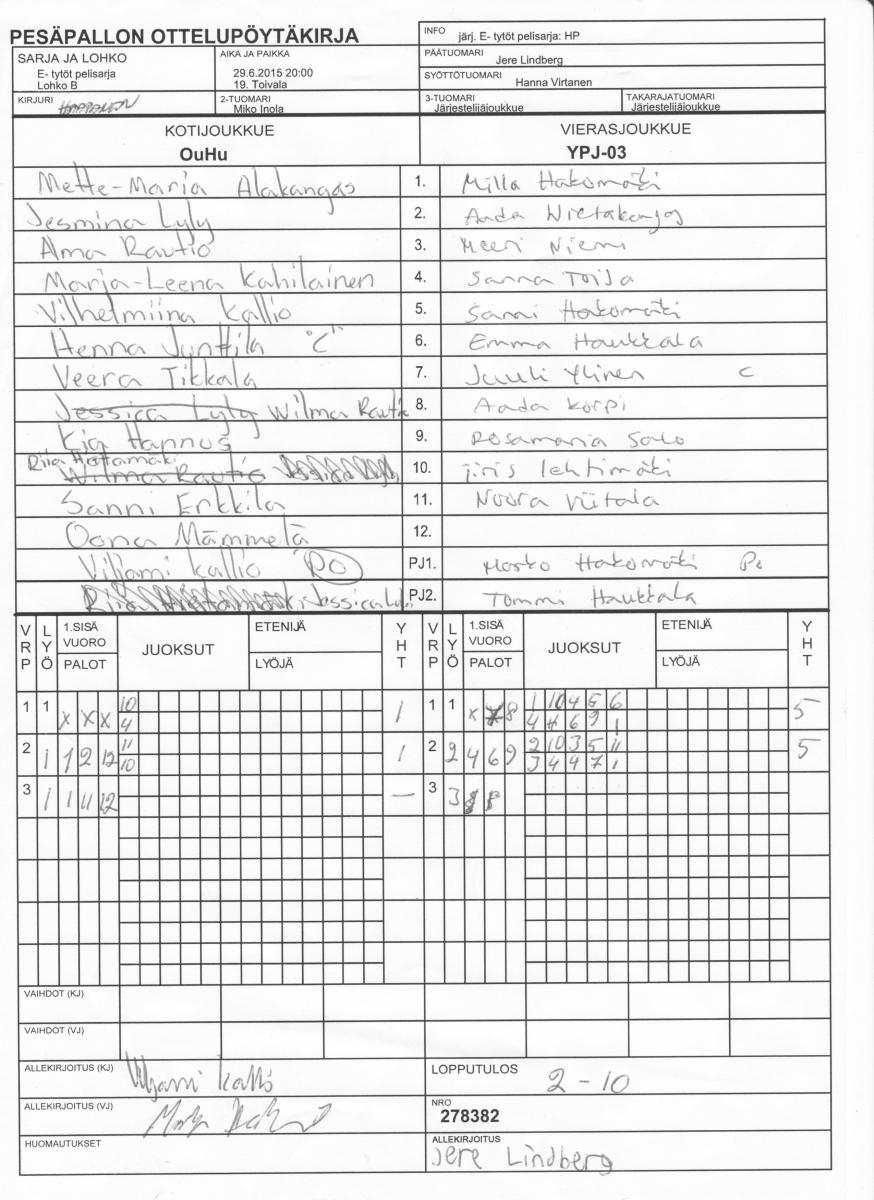 PESÄPALLON OTTELUPÖYTÄKIRJA
INFO järj. E- tytöt pelisarja: HP
SARJA JA LOHKO
E- tytöt pelisarja
Lohko B
AIKA JA PAIKKA
29.6.2015 20:00
19. Toivala
PÄÄTUOMARI
Jere Lindberg
SYÖTTÖTUOMARI
Hanna Virtanen
KIRJURI
2-TUOMARI
Miko Inola
3-TUOMARI
Järjestelijäjoukkue
TAKARAJATUOMARI
Järjestelijäjoukkue
KOTIJOUKKUE
OuHu
VIERASJOUKKUE
YPJ-03
Mette-Maria Alakangas 1. Milla Hakomäki
Jesmina Lyly 2. Aada Wietakangas
Alma Rautio 3. Meeri Niemi
Marja-Leena Kahilainen 4. Sanna Toija
Vilhelmiina Kallio 5. Sanni Hakomäki
Henna Junttila "C" 6. Emma Haukkala
Veera Tikkala 7. Juuli Ylinen C
Jessica Lyly Wilma Rautio 8. Aada Korpi
Kia Hannus 9. Rosamaria Salo
Riia Hietamäki
Wilma Rautio 10. iiris lehtimäki
Sanni Erkkila 11. Noora Viitala
Oona Mämmelä 12.
Viljami Kallio PO PJ1. Marko Hakomäki Po
Jessica Lyly PJ2. Tommi Haukkala
VRP LYÖ 1.SISÄ VUORO PALOT JUOKSUT ETENIJÄ LYÖJÄ YHT VRP LYÖ 1.SISÄ VUORO PALOT JUOKSUT ETENIJÄ LYÖJÄ YHT
1 1 x x x 10 1 1 1 x 8 1 10 4 5 6 5
4 4 11 6 9 1
2 1 1 2 12 11 1 2 2 4 6 9 2 10 3 5 11 5
10 3 4 4 7 1
3 1 1 11 12 — 3 3
VAIHDOT (KJ)
VAIHDOT (VJ)
ALLEKIRJOITUS (KJ) Viljami Kallio
LOPPUTULOS 2 - 10
ALLEKIRJOITUS (VJ)
NRO
278382
HUOMAUTUKSET
ALLEKIRJOITUS
Jere Lindberg